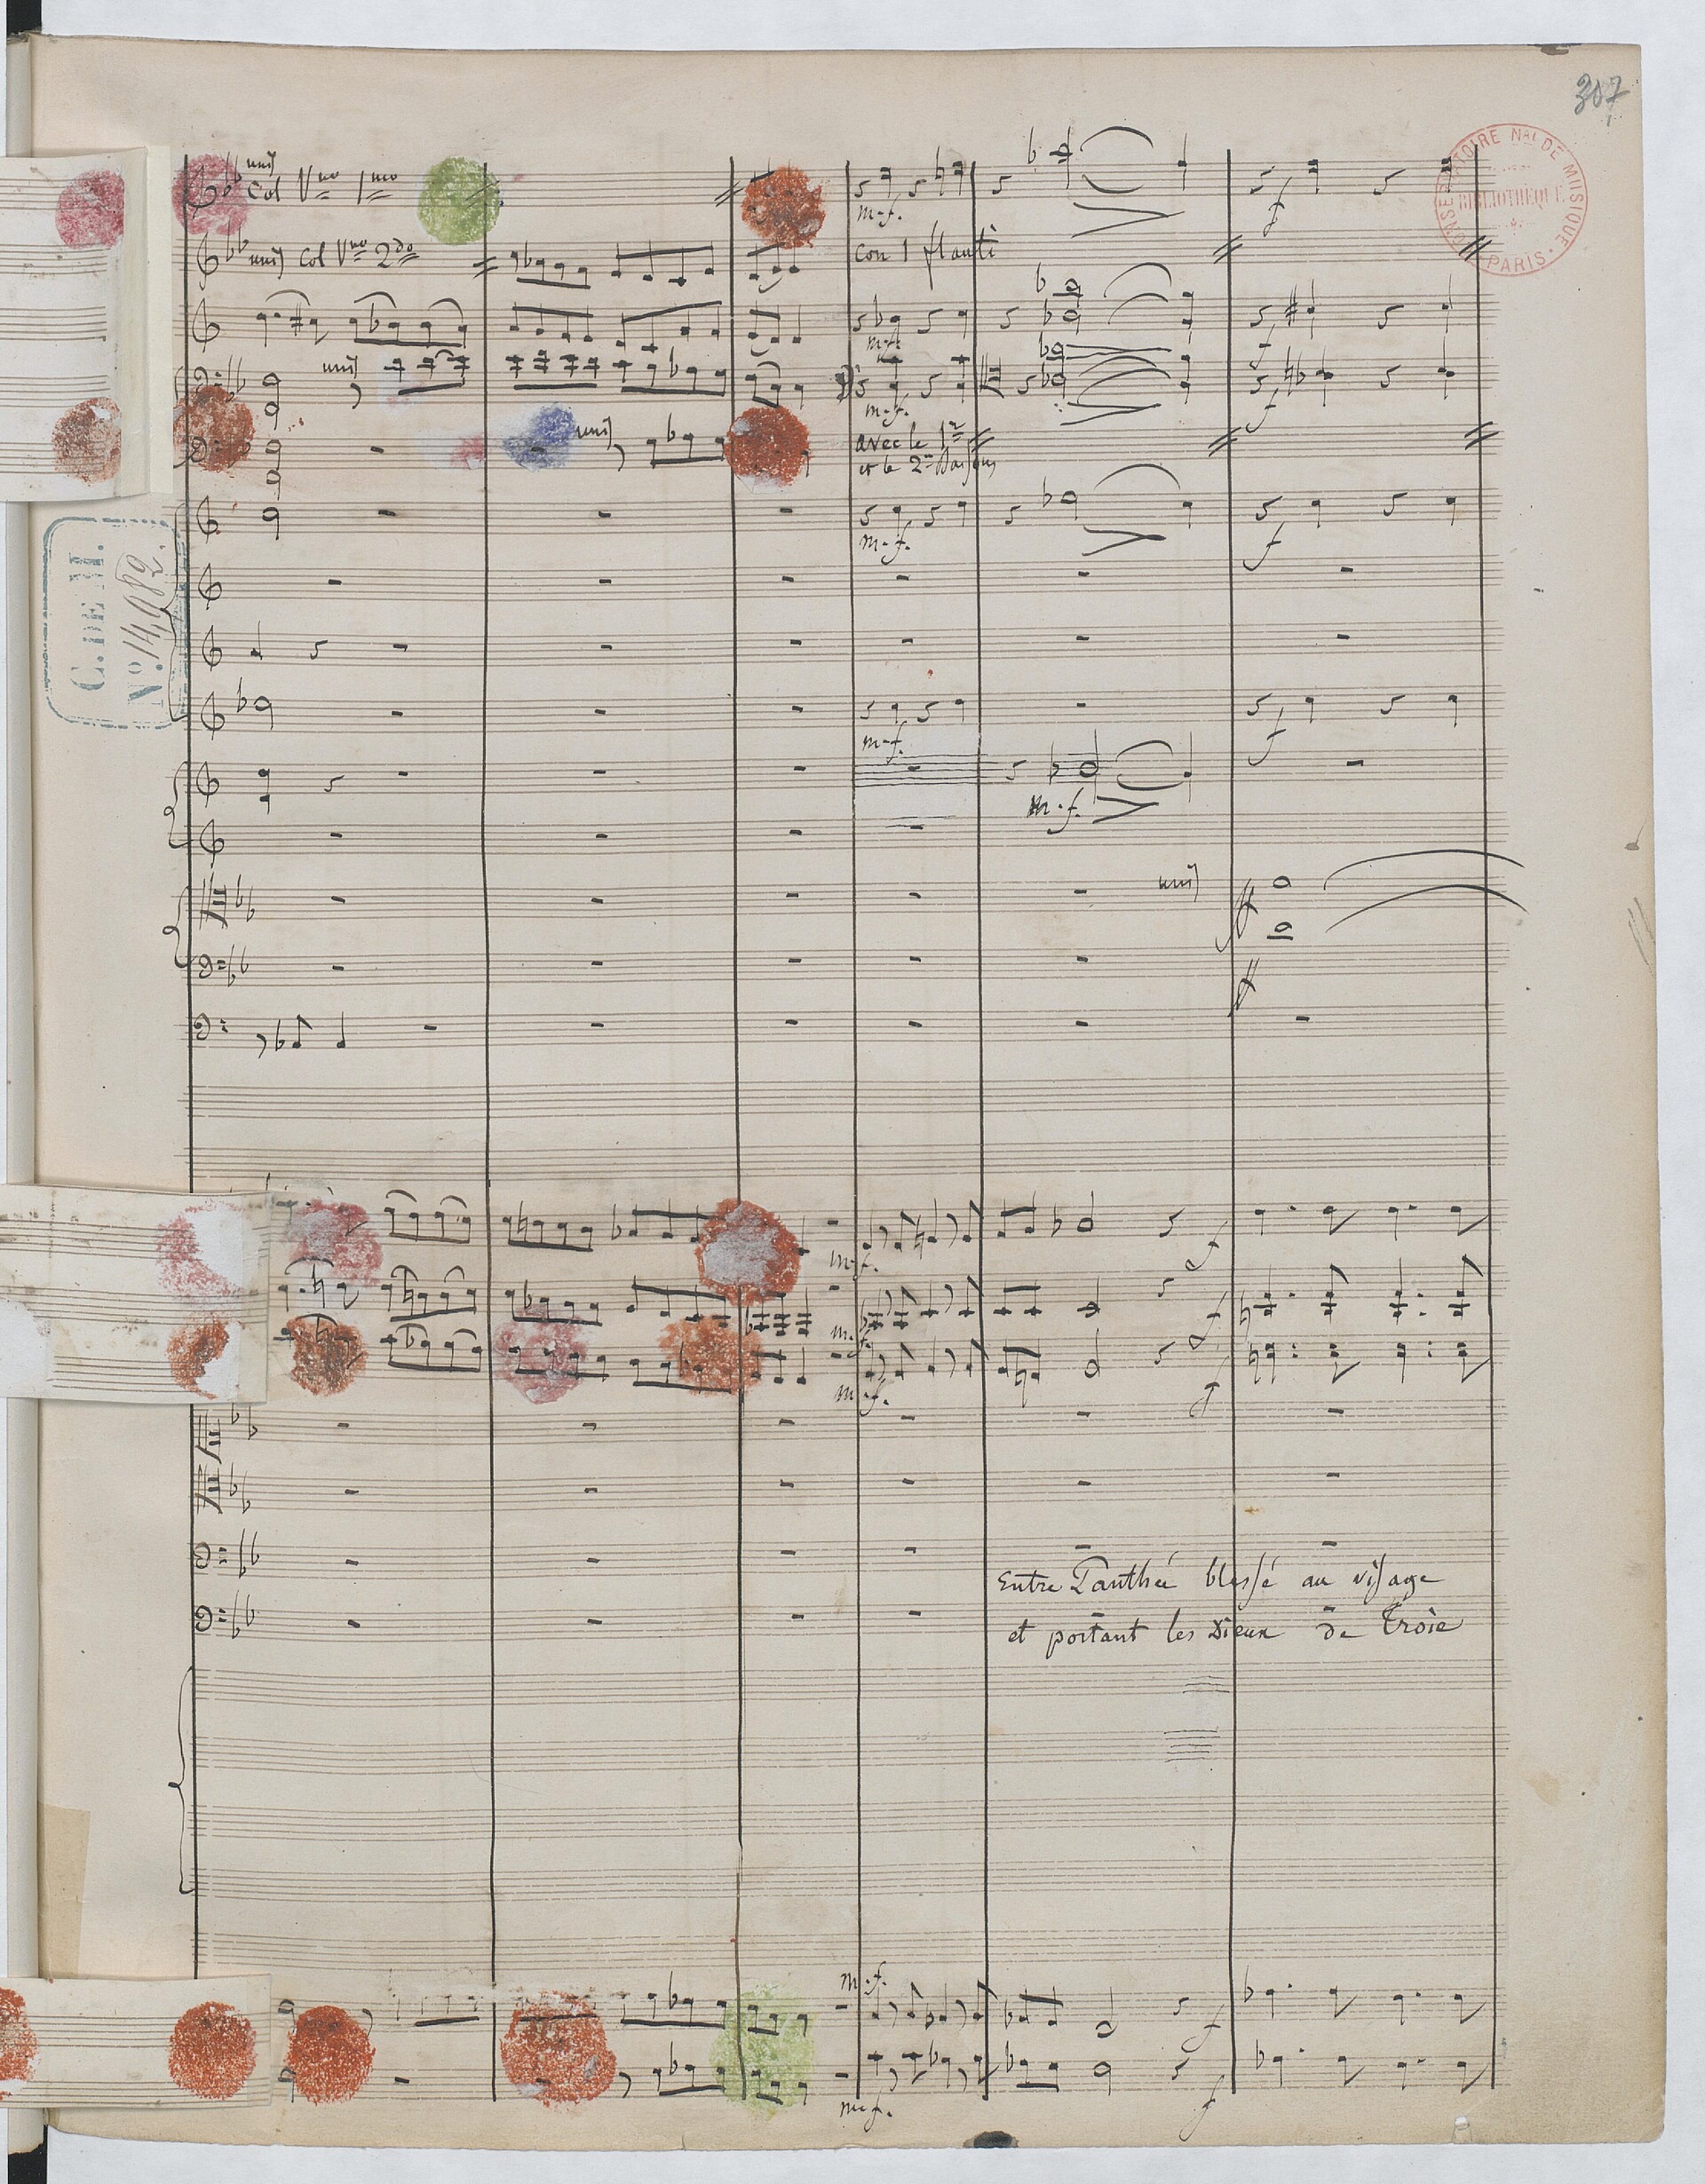 307
CONSERVATOIRE NAL DE MUSIQUE
BIBLIOTHEQUE
PARIS
unis
Col Vno 1mo
m-f.
f
unis col Vno 2do
con 1 flauti
m-f.
f
unis
m-f.
f
unis
avec le 1er
et le 2me Bassons
m-f.
f
C. DE M.
No. 14,982.
m-f.
f
m-f.
unis
ff
ff
m-f.
f
m-f.
f
m-f.
f
Entre Panthée blessé au visage
et portant les Dieux de Troie
m-f.
f
m-f.
f